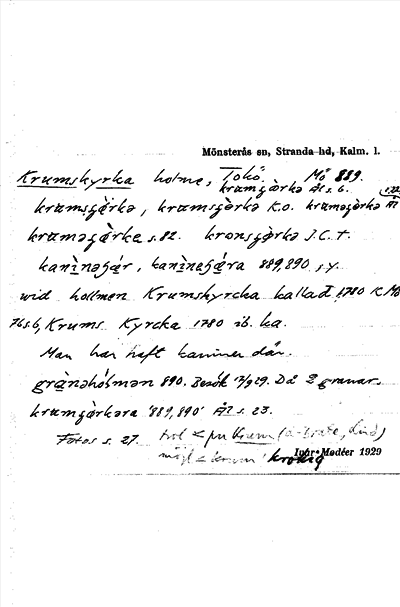 Mönsterås sn, Stranda hd, Kalm. l.
Krumskyrka holme, Tokö. Mö 889.
krumgòrka Ål s. 6.
krumsgǿrkə, krumsgòrkə K.O. krumsgòrkə
kruməgòrkə s. 82. kronsgòrkə J.C.T.
kanìnəhǿr, kanìnəhǿra 889,890 s.y.
wid hollmen Krumskyrcka kallad 1780 K Mö
76 s. 6, Krums Kyrcka 1780 ib. ka.
Man har haft kaniner där.
grànəhólmən 890. Besök 12/9 29. Då 2 granar.
krumgòrkəra '889,890' Ål s. 23.
Fotos s. 27. trol < pn Krum
möjl < krum 'krokig
Ivar Modéer 1929